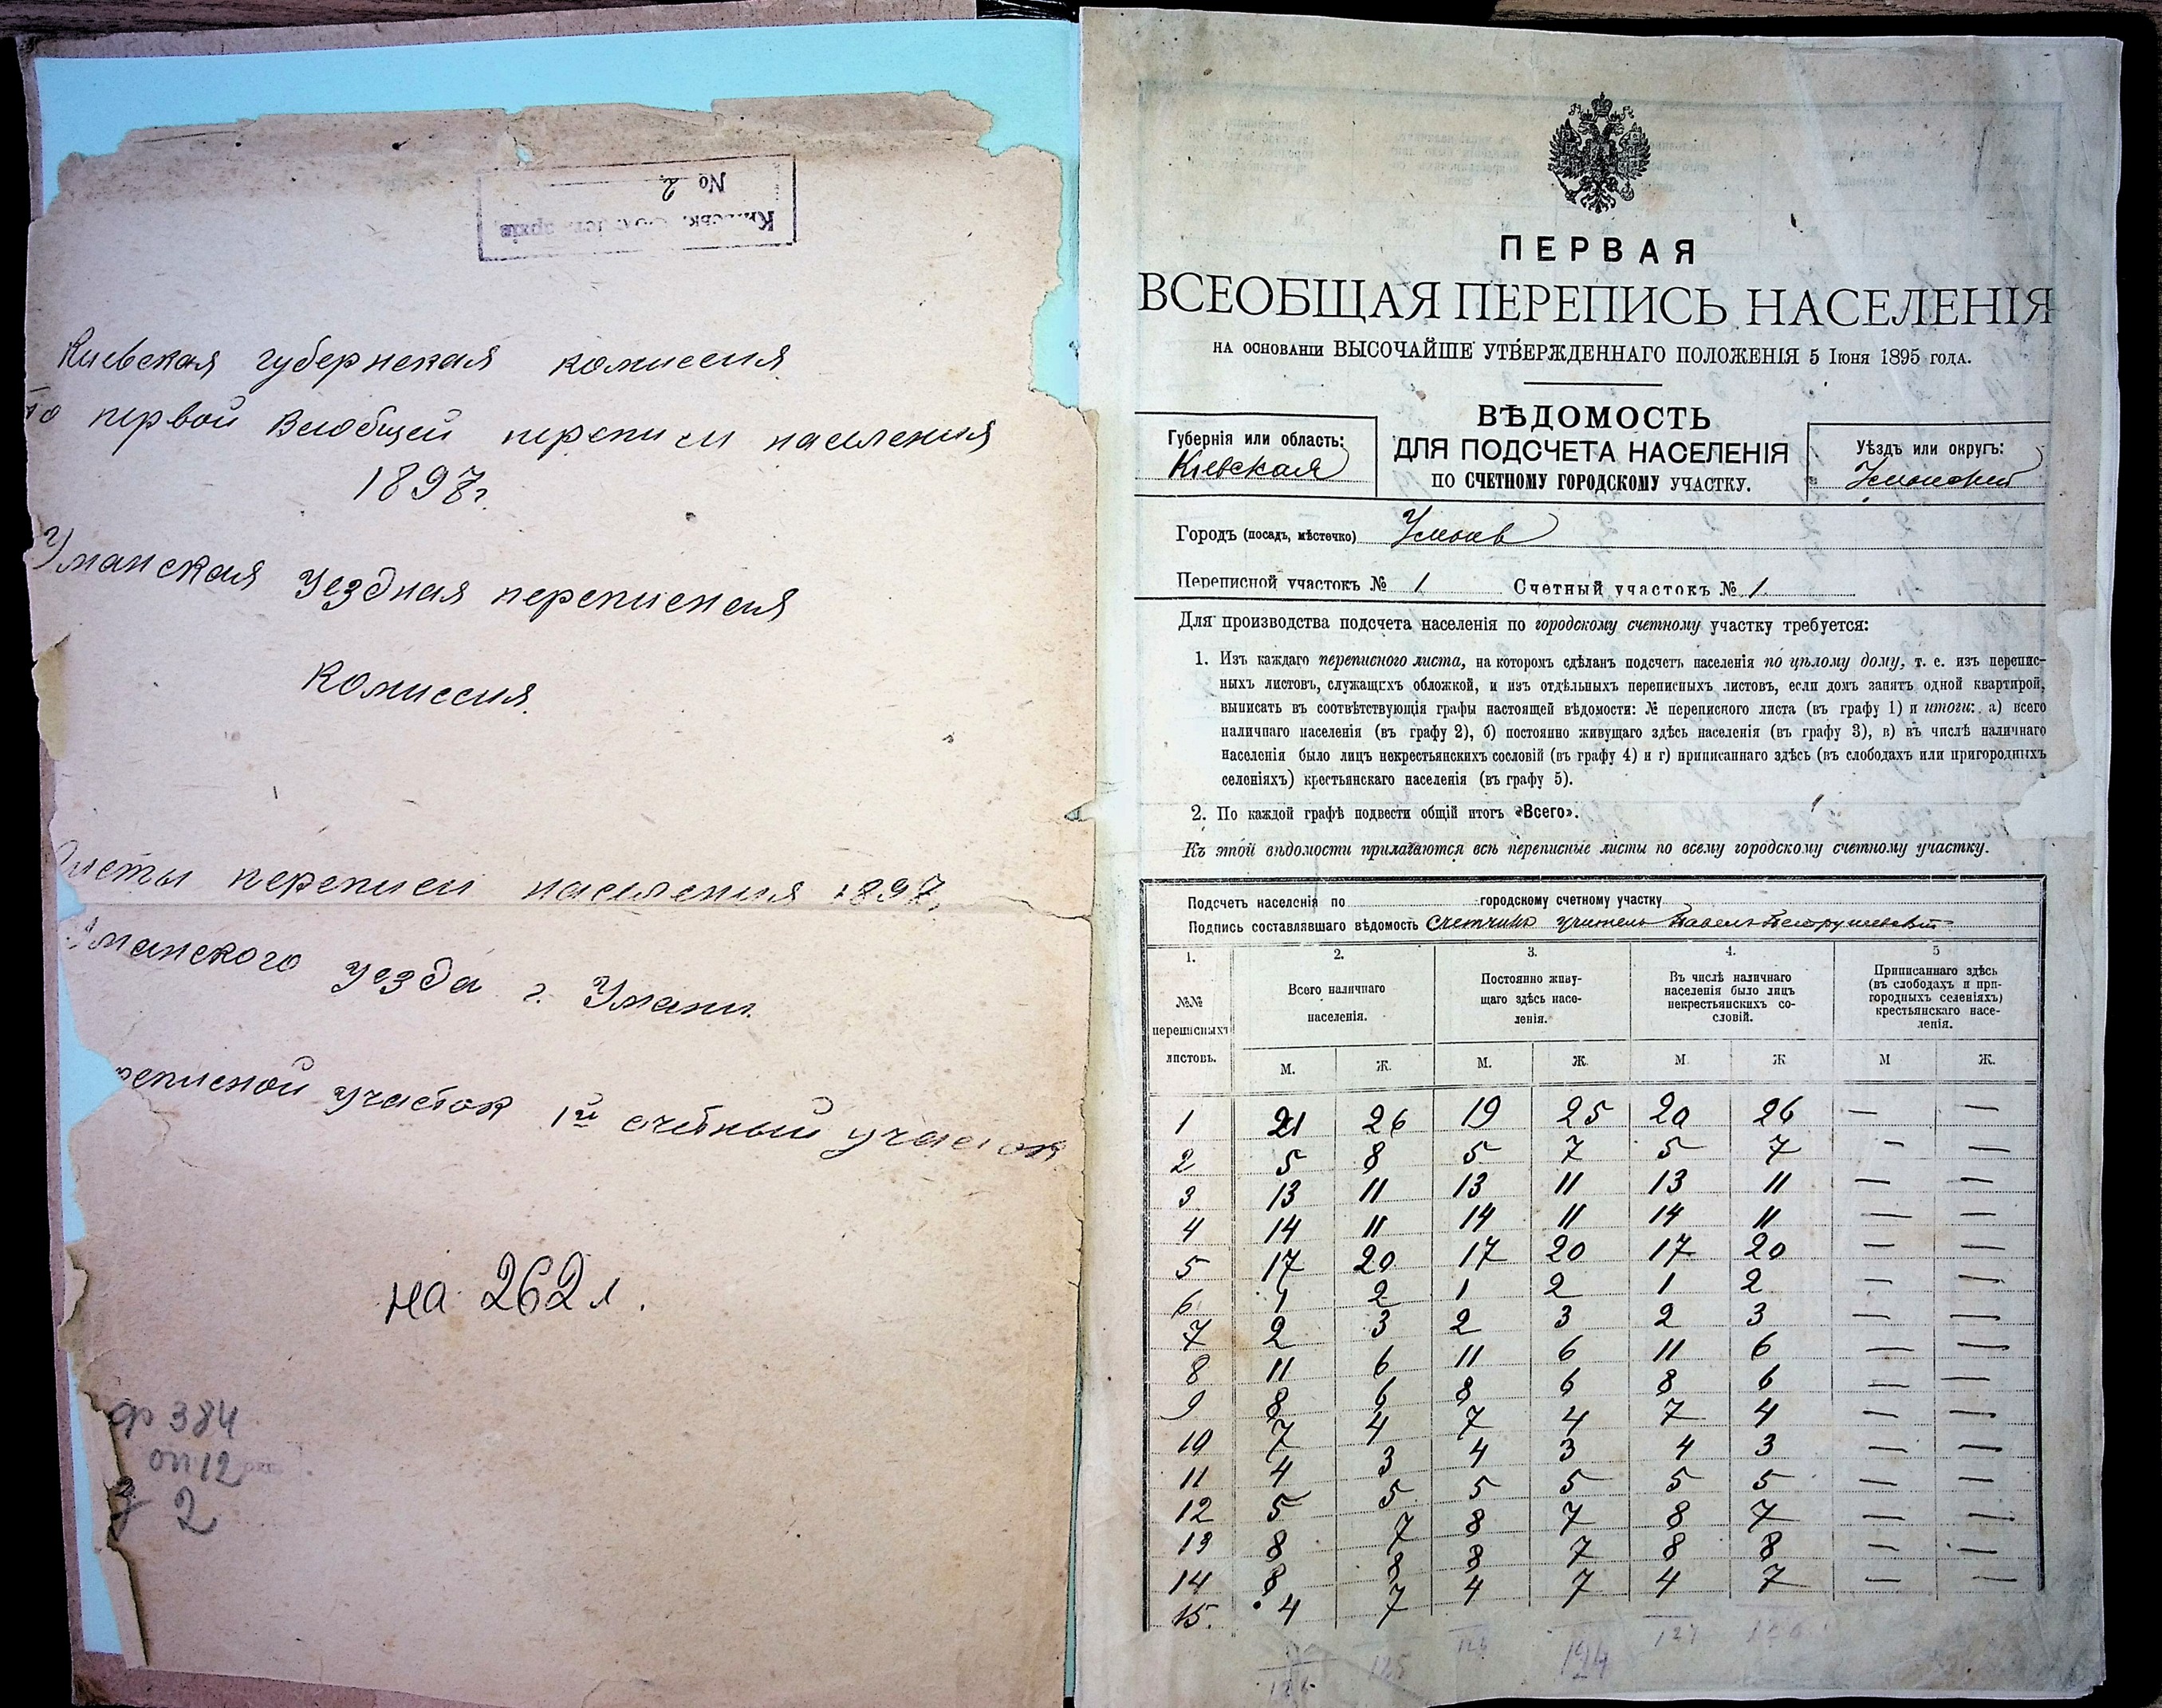 № 2
Киевская губернская комиссия
по первой Всеобщей переписи населения
1897 г.
Уманская Уездная переписная
Комиссия.
Листы переписи населения 1897 г.
Уманского уезда г. Умани.
реписной участок 1й счётный участок
на 262 л.
ф 384
оп 12
з 2
ПЕРВАЯ
ВСЕОБЩАЯ ПЕРЕПИСЬ НАСЕЛЕНІЯ
НА ОСНОВАНІИ ВЫСОЧАЙШЕ УТВЕРЖДЕННАГО ПОЛОЖЕНІЯ 5 Іюня 1895 года.
ВѢДОМОСТЬ
ДЛЯ ПОДСЧЕТА НАСЕЛЕНІЯ
ПО СЧЕТНОМУ ГОРОДСКОМУ УЧАСТКУ.
Губернія или область:
Кіевская
Уѣздъ или округъ:
Уманскій
Городъ (посадъ, мѣстечко) Умань
Переписной участокъ № 1 Счетный участокъ № 1
Для производства подсчета населенія по городскому счетному участку требуется:
1. Изъ каждаго переписного листа, на которомъ сдѣланъ подсчетъ населенія по цѣлому дому, т. е. изъ перепис-
ныхъ листовъ, служащихъ обложкой, и изъ отдѣльныхъ переписныхъ листовъ, если домъ занятъ одной квартирой,
выписать въ соотвѣтствующія графы настоящей вѣдомости: № переписного листа (въ графу 1) и итоги: а) всего
наличнаго населенія (въ графу 2), б) постоянно живущаго здѣсь населенія (въ графу 3), в) въ числѣ наличнаго
населенія было лицъ некрестьянскихъ сословій (въ графу 4) и г) приписаннаго здѣсь (въ слободахъ или пригородныхъ
селеніяхъ) крестьянскаго населенія (въ графу 5).
2. По каждой графѣ подвести общій итогъ «Всего».
Къ этой вѣдомости прилагаются всѣ переписные листы по всему городскому счетному участку.
Подсчетъ населенія по городскому счетному участку
Подпись составлявшаго вѣдомость Счетчикъ учитель Павелъ
1. 2. 3. 4. 5
№№ переписныхъ листовъ.
Всего наличнаго населенія.
Постоянно живу-
щаго здѣсь насе-
ленія.
Въ числѣ наличнаго
населенія было лицъ
некрестьянскихъ со-
словій.
Приписаннаго здѣсь
(въ слободахъ и при-
городныхъ селеніяхъ)
крестьянскаго насе-
ленія.
М. Ж. М. Ж. М. Ж М Ж.
1 21 26 19 25 20 26 — —
2 5 8 5 7 5 7 — —
3 13 11 13 11 13 11 — —
4 14 11 14 11 14 11 — —
5 17 20 17 20 17 20 — —
6 1 2 1 2 1 2 — —
7 2 3 2 3 2 3 — —
8 11 6 11 6 11 6 — —
9 8 6 8 6 8 6 — —
10 7 4 7 4 7 4 — —
11 4 3 4 3 4 3 — —
12 5 5 5 5 5 5 — —
13 8 7 8 7 8 7 — —
14 8 8 8 7 8 8 — —
15. 4 7 4 7 4 7 — —
126 125 126 124 127